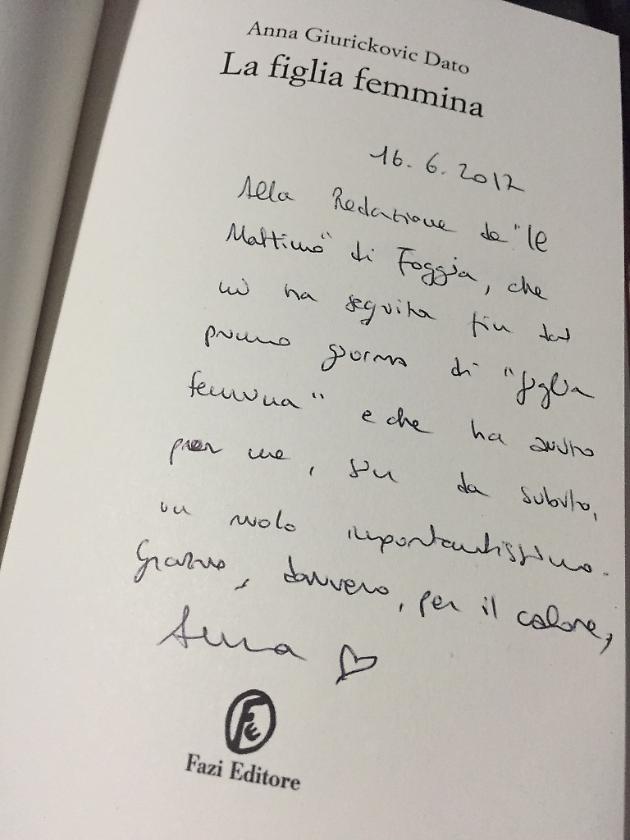 Anna Giurickovic Dato
La figlia femmina
16.6.2017
Alla Redazione de "l'e
Mattino" di Foggia, che
mi ha seguita fin dal
primo giorno di "figlia
femmina" e che ha avuto
per me, fin da subito,
un ruolo importantissimo.
Grazie, davvero, per il calore,
Anna
Fazi Editore